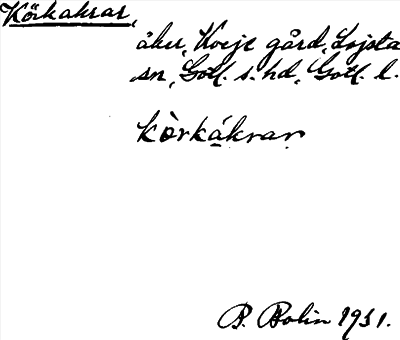 Körkakrar,
åker, Kveje gård, Lojsta
sn, Gotl. s. hd, Gotl. l.
kòrkákrar
B. Bolin 1931.